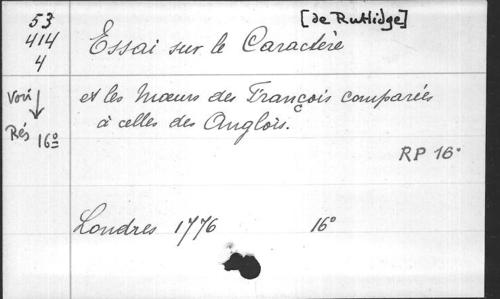 [de Rutlidge]
53
414
4
Essai sur le Caractère
Voir
et les Mœurs des François comparées
à celles des Anglois.
Rés 16º
RP 16º
Londres 1776 16º